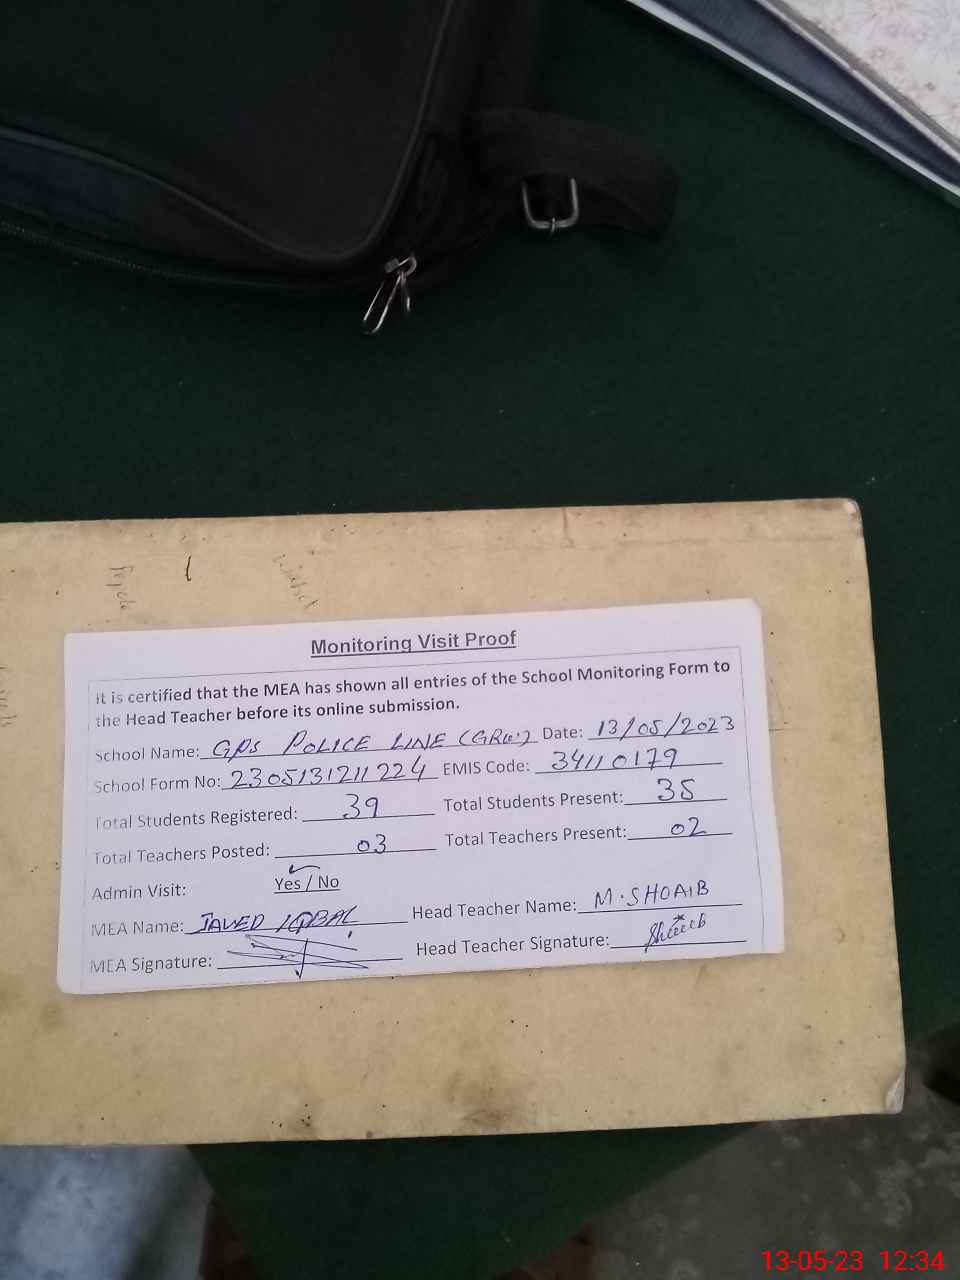 Monitoring Visit Proof
it is certified that the MEA has shown all entries of the School Monitoring Form to
the Head Teacher before its online submission.
School Name: GPS POLICE LINE (GRW) Date: 13/05/2023
School Form No: 230513121224 EMIS Code: 34110179
Total Students Registered: 39 Total Students Present: 35
Total Teachers Posted: 03 Total Teachers Present: 02
Admin Visit: Yes / No
MEA Name: JAVED IQBAL Head Teacher Name: M. SHOAIB
MEA Signature: Head Teacher Signature: Shoaib
13-05-23 12:34